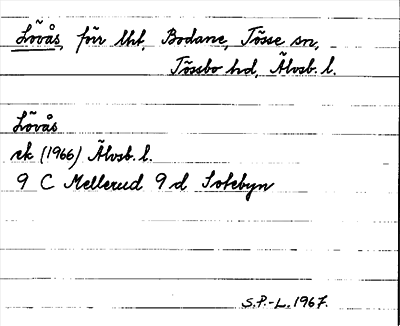 Lövås, förr lht, Bodane, Tösse sn,
Tössbo hd, Älvsb. l.
Lövås
ek (1966) Älvsb. l.
9 C Mellerud 9 d Sotebyn
S.P.-L. 1967.